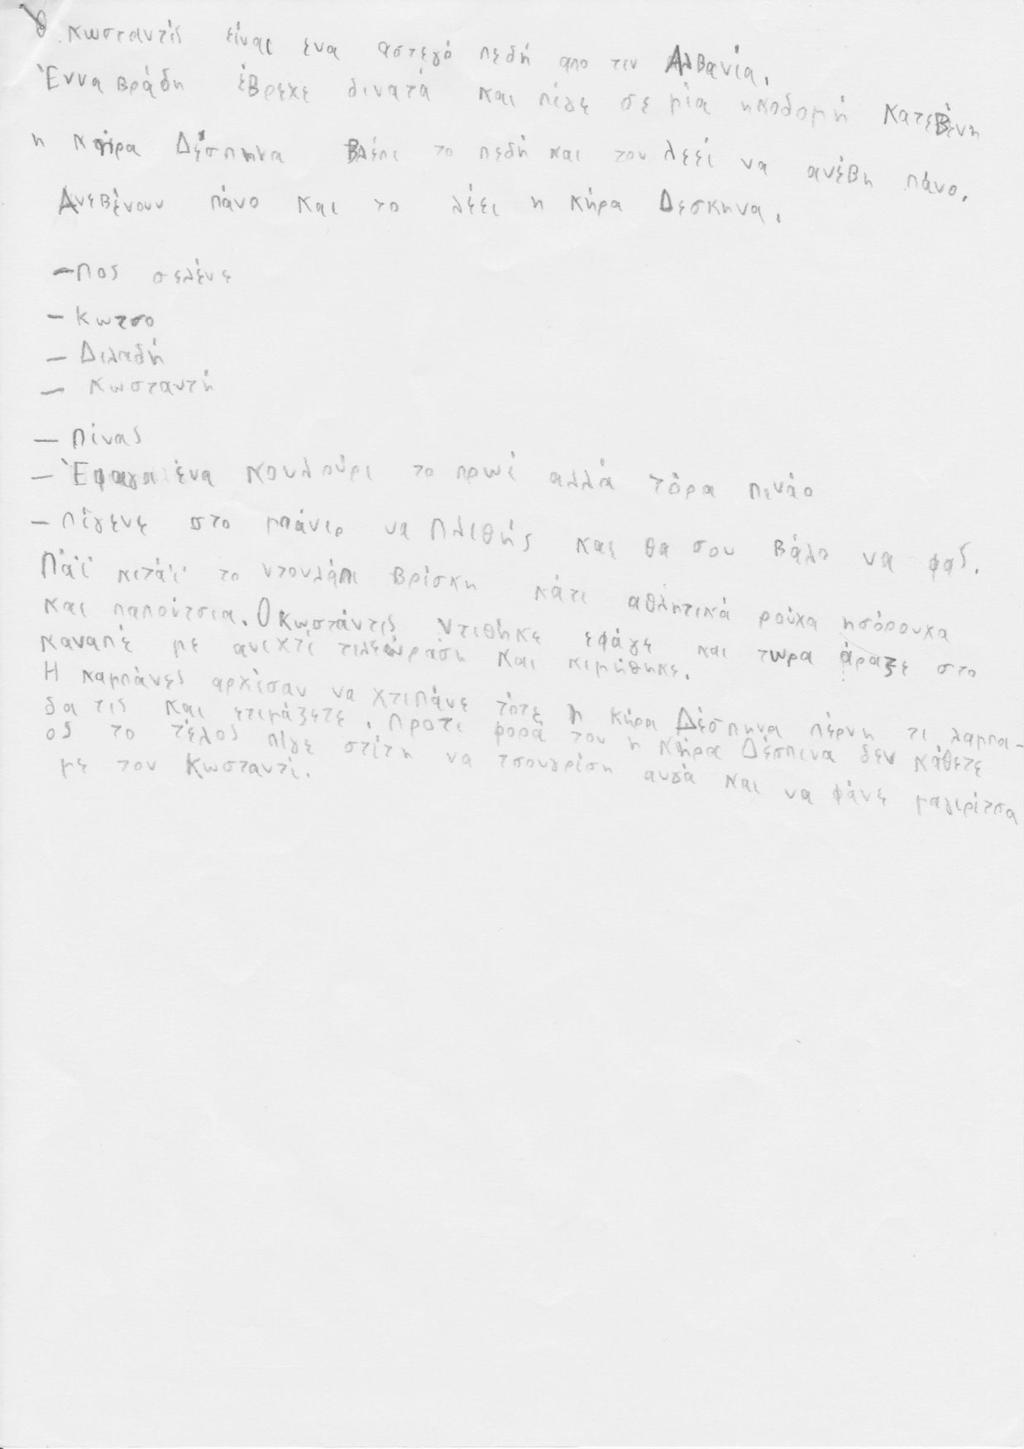 Ο Κωσταντίς είναι ενα αστεγό πεδή απο τιν Αλβανία.
Έννα βράδη έβρεχε δινατά και πίγε σε μία ηκοδομή κατεβένη
η Κήρα Δέσπηνα βλέπι το πεδή και του λεεί να ανέβη πάνο.
Ανεβένουν πάνο και το λέει η κήρα Δεσκηνα.
- Πος σελένε
- Κωτσο
- Διλαδή
- Κωσταντή
- Πίνας
- Έφαγα ένα κουλούρι το πρωί αλλά τόρα πινάο
- Πίγενε στο μπάνιο να πλιθής και θα σου βάλο να φας.
Πάϊ κιτάϊ το ντουλάπι βρίσκη κάτι αθλητικά ρούχα ησόρουχα
και παπούτσια. Ο Κωστάντις ντιθηκε εφάγε και τωρα άραξε στο
καναπέ με ανιχτί τιλεώραση και κιμήθηκε.
Η καμπάνες αρχίσαν να χτιπάνε τότε η κήρα Δέσπηνα πέρνη τι λαμπα-
δα τις και ετιμάζετε. Προτι φορά του η Κήρα Δέσπινα δεν κάθετε
ος το τέλος πίγε στίτη να τσουγρίση αυγά και να φάνε μαγιρίτσα
με τον Κωσταντί.